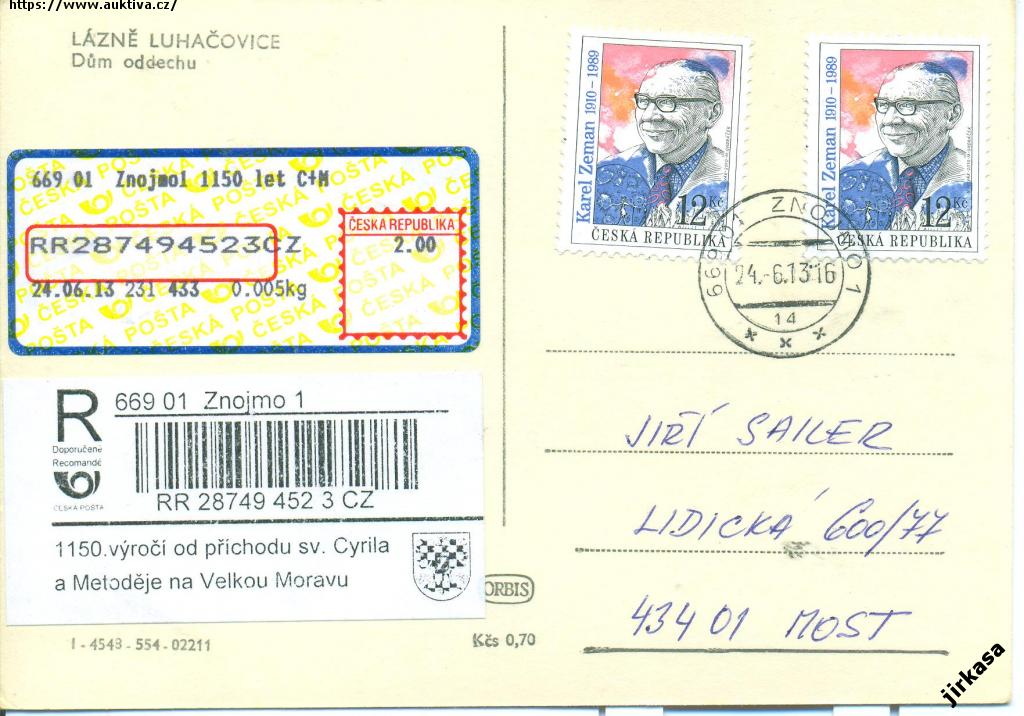 https://www.auktiva.cz/
LÁZNĚ LUHAČOVICE
Dům oddechu
669 01 Znojmo1 1150 let C+M
ČESKÁ REPUBLIKA
RR287494523CZ
2.00
24.06.13 231 433 0.005kg
R
669 01 Znojmo 1
Doporučené
Recomandé
ČESKÁ POŠTA
RR 28749 452 3 CZ
1150.výročí od příchodu sv. Cyrila
a Metoděje na Velkou Moravu
ORBIS
I - 4548 - 554 - 02211
Kčs 0,70
Karel Zeman 1910 – 1989
12 Kč
ČESKÁ REPUBLIKA
Karel Zeman 1910 – 1989
12 Kč
ČESKÁ REPUBLIKA
669 01 ZNOJMO 1
24.-6.13-16
14
JIŘÍ SAILER
LIDICKÁ 600/77
434 01 MOST
jirkasa